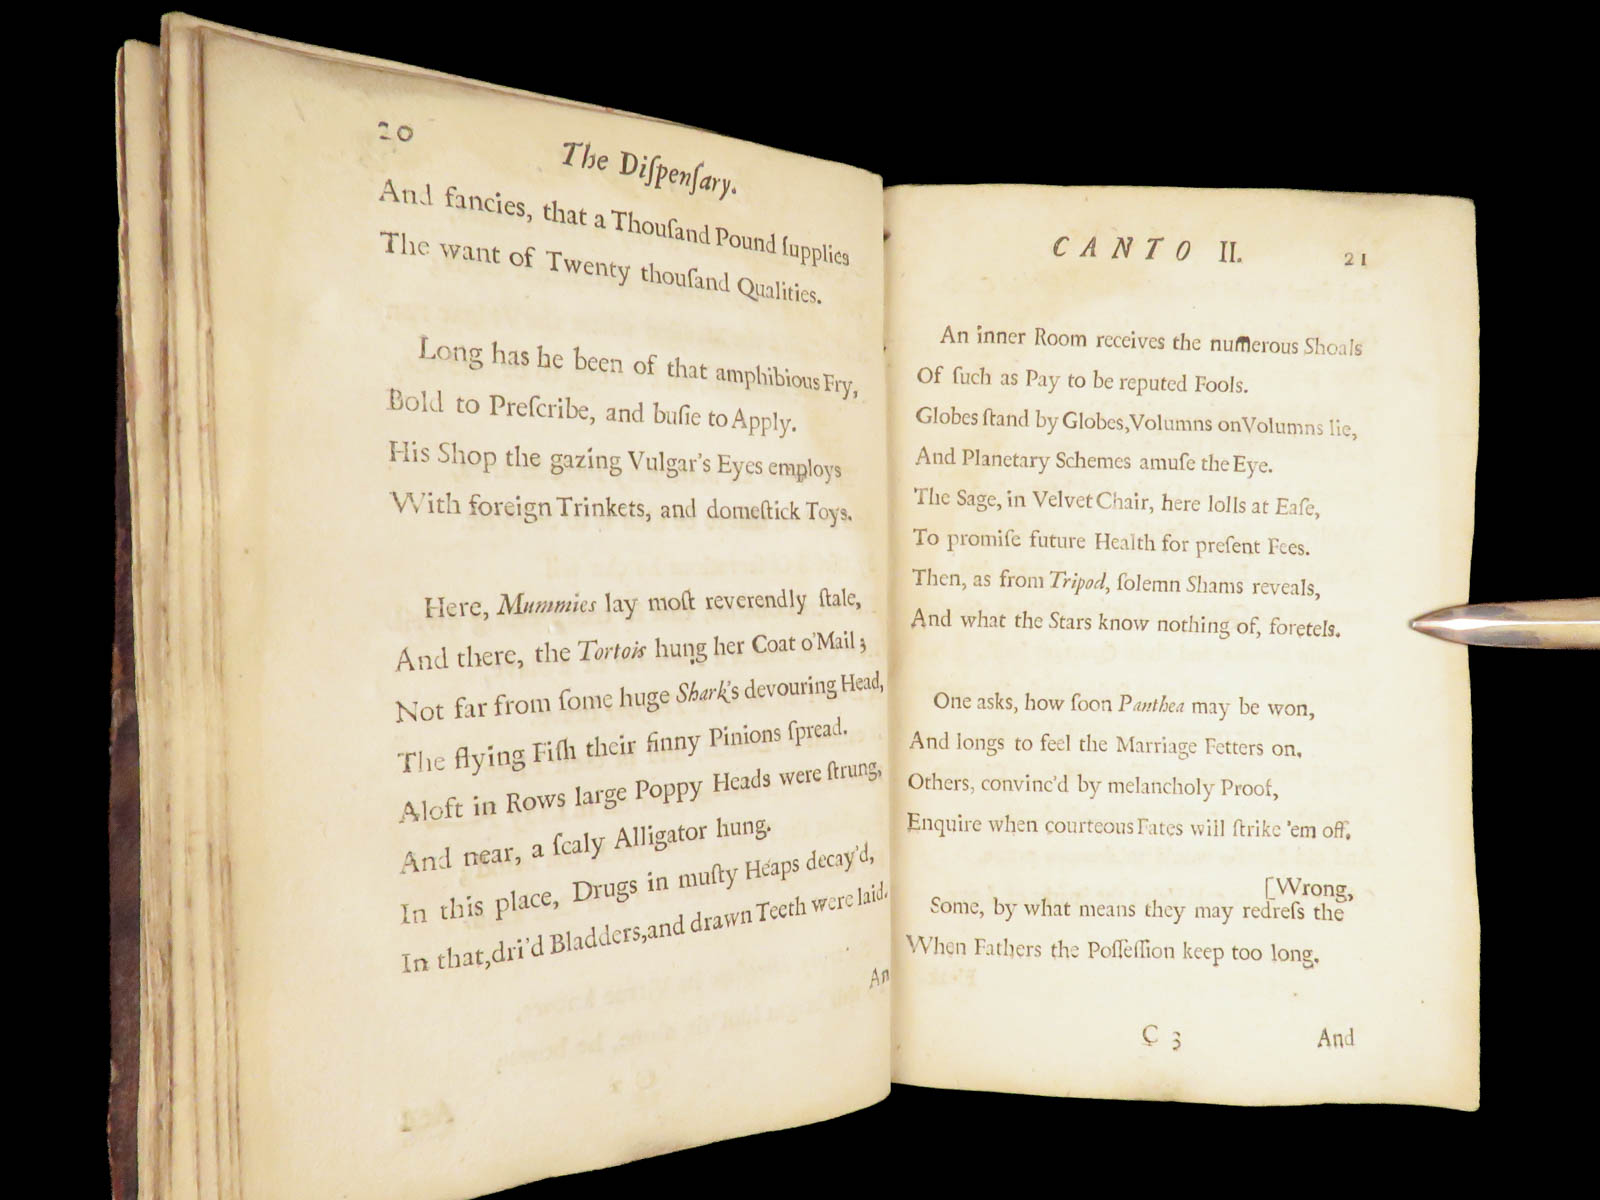 20
The Diſpenſary.
And fancies, that a Thouſand Pound ſupplies
The want of Twenty thouſand Qualities.
Long has he been of that amphibious Fry,
Bold to Preſcribe, and buſie to Apply.
His Shop the gazing Vulgar's Eyes employs
With foreign Trinkets, and domeſtick Toys.
Here, Mummies lay moſt reverendly ſtale,
And there, the Tortois hung her Coat o'Mail;
Not far from ſome huge Shark's devouring Head,
The flying Fiſh their finny Pinions ſpread.
Aloft in Rows large Poppy Heads were ſtrung,
And near, a ſcaly Alligator hung.
In this place, Drugs in muſty Heaps decay'd,
In that, dri'd Bladders, and drawn Teeth were laid.
An
CANTO II. 21
An inner Room receives the numerous Shoals
Of ſuch as Pay to be reputed Fools.
Globes ſtand by Globes, Volumns on Volumns lie,
And Planetary Schemes amuſe the Eye.
The Sage, in Velvet Chair, here lolls at Eaſe,
To promiſe future Health for preſent Fees.
Then, as from Tripod, ſolemn Shams reveals,
And what the Stars know nothing of, foretels.
One asks, how ſoon Panthea may be won,
And longs to feel the Marriage Fetters on.
Others, convinc'd by melancholy Proof,
Enquire when courteous Fates will ſtrike 'em off.
[Wrong,
Some, by what means they may redreſs the
When Fathers the Poſſeſſion keep too long.
C 3 And